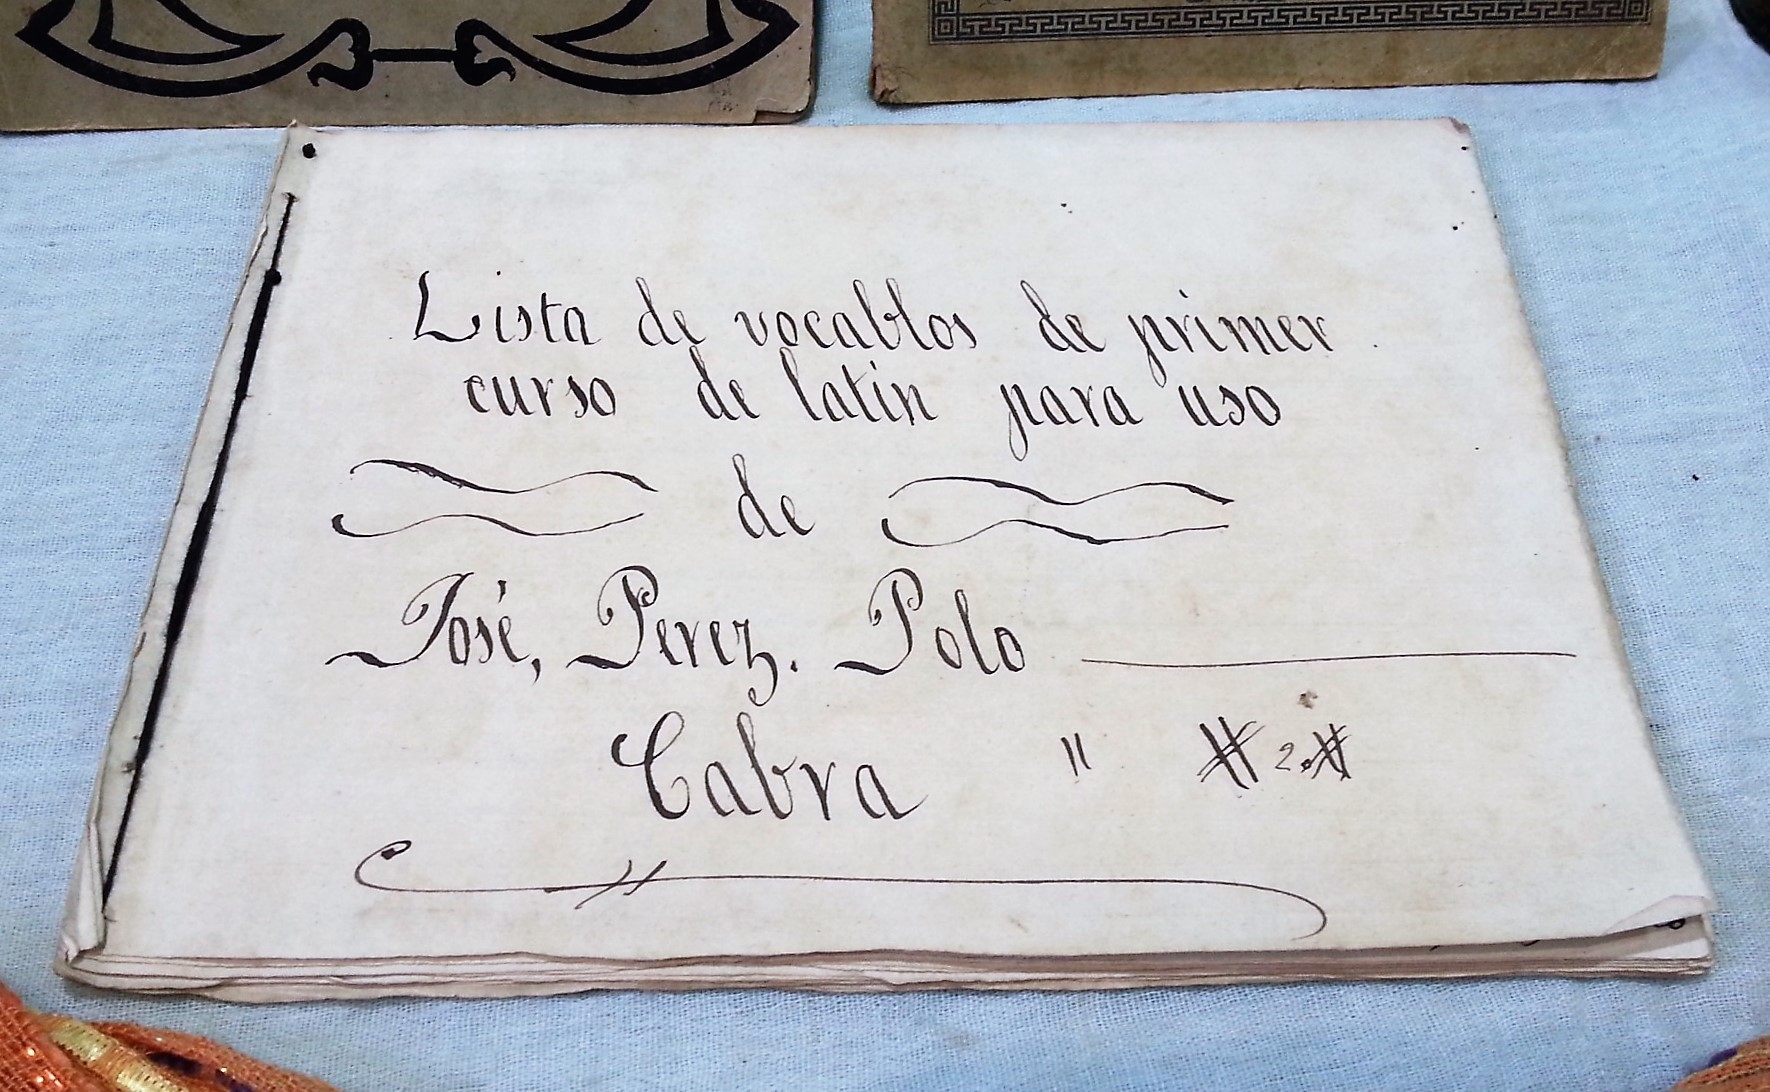 Lista de vocablos de primer
curso de latin para uso
de
José, Perez. Polo
Cabra " # 2.#